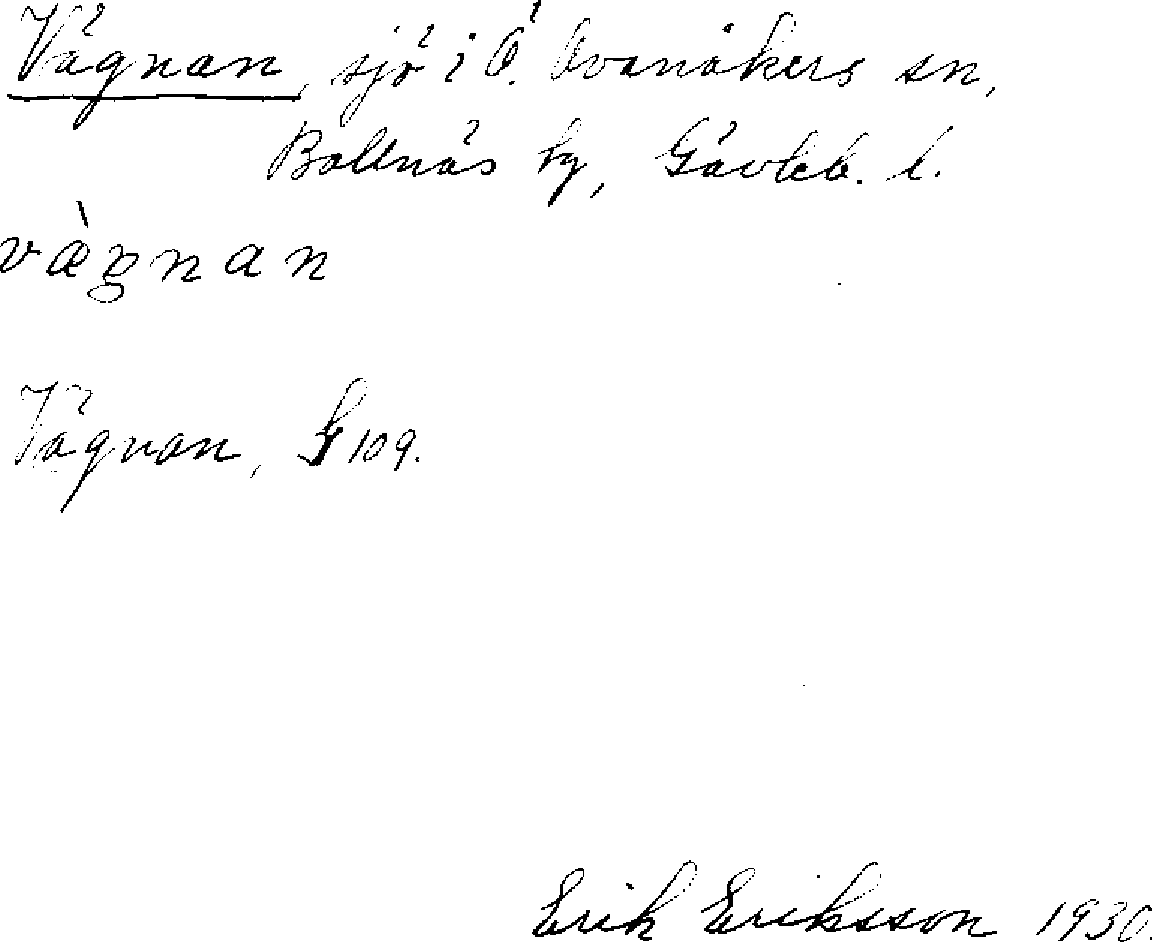 Vägnan, sjö i Ö. Ovanåkers sn,
Bollnäs tg, Gävleb. l.
vægnan
Vägnan, G 109.
Erik Eriksson 1930.